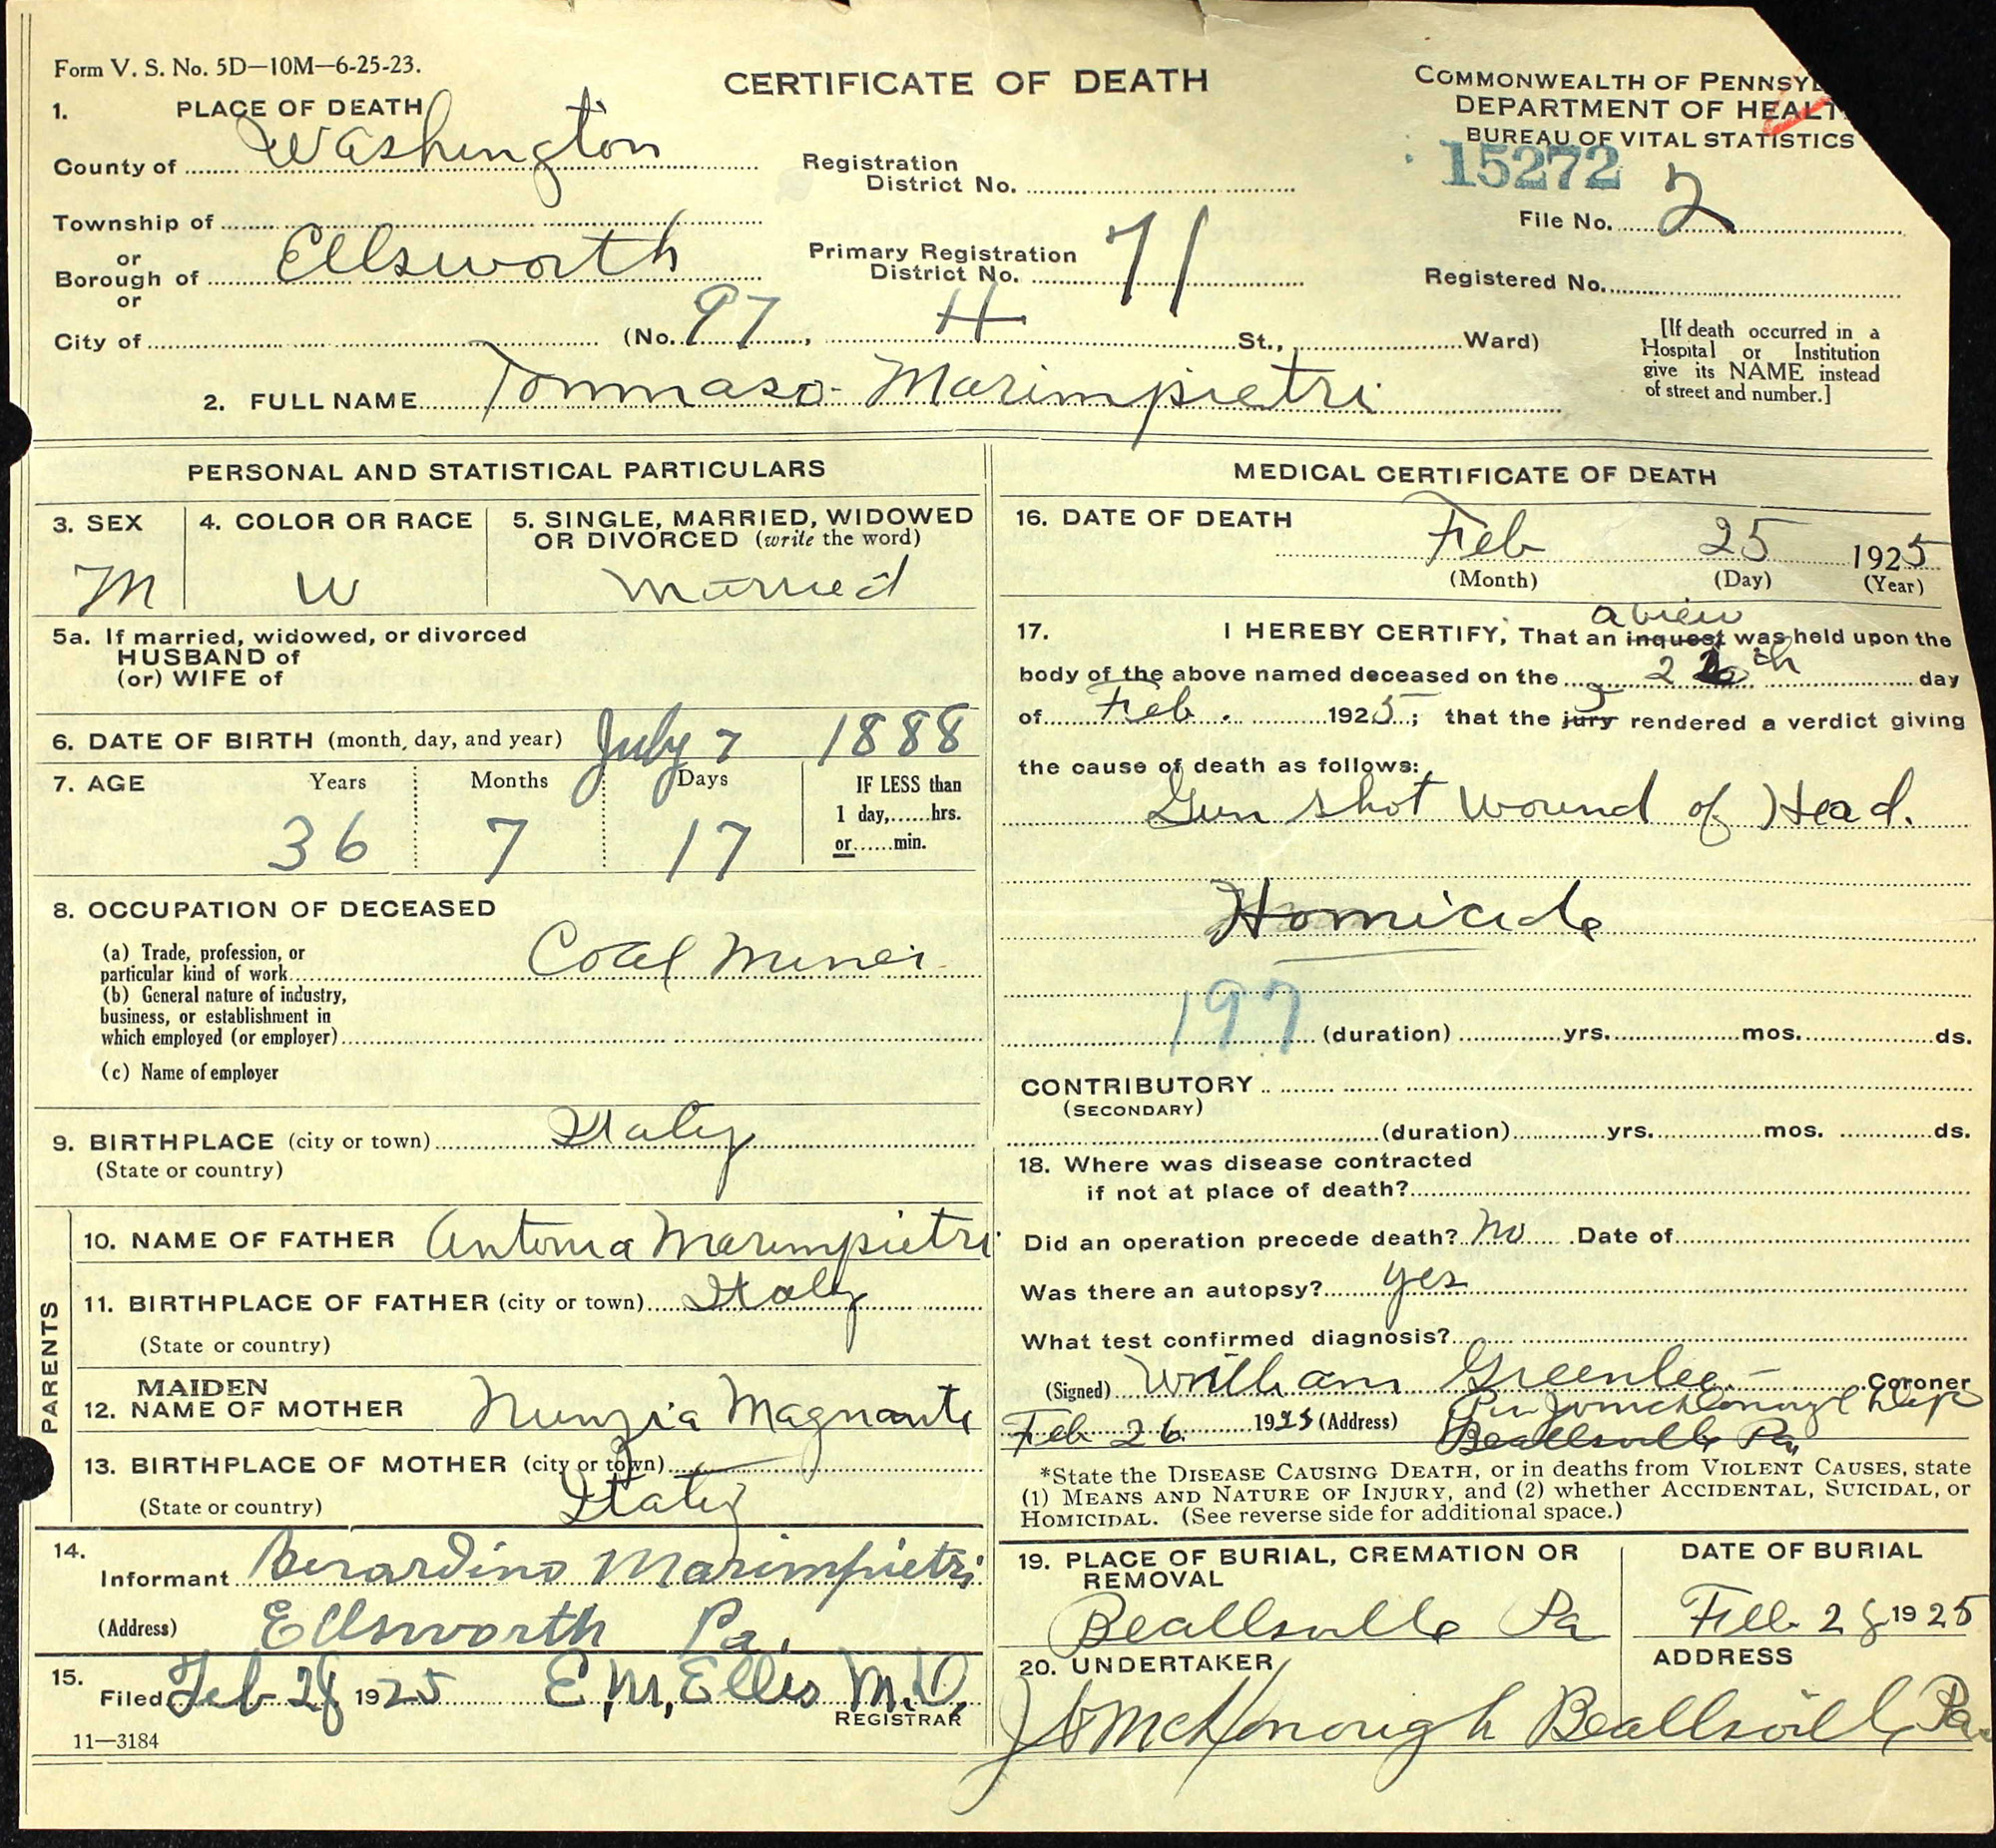 Form V. S. No. 5D—10M—6-25-23.
CERTIFICATE OF DEATH
COMMONWEALTH OF PENNSYL
DEPARTMENT OF HEALT
BUREAU OF VITAL STATISTICS
1. PLACE OF DEATH
County of Washington
Registration District No.
15272
File No. 2
Township of
or
Borough of Ellsworth
or
Primary Registration District No. 71
Registered No.
City of (No. 97, H St., Ward)
[If death occurred in a Hospital or Institution give its NAME instead of street and number.]
2. FULL NAME Tommaso Marimpietri
PERSONAL AND STATISTICAL PARTICULARS
3. SEX
M
4. COLOR OR RACE
W
5. SINGLE, MARRIED, WIDOWED OR DIVORCED (write the word)
Married
5a. If married, widowed, or divorced
HUSBAND of
(or) WIFE of
6. DATE OF BIRTH (month, day, and year) July 7 1888
7. AGE Years Months Days
36 7 17
IF LESS than
1 day,......hrs.
or......min.
8. OCCUPATION OF DECEASED
(a) Trade, profession, or
particular kind of work Coal Miner
(b) General nature of industry,
business, or establishment in
which employed (or employer)
(c) Name of employer
9. BIRTHPLACE (city or town) Italy
(State or country)
PARENTS
10. NAME OF FATHER Antonia Marimpietri
11. BIRTHPLACE OF FATHER (city or town) Italy
(State or country)
12. MAIDEN NAME OF MOTHER Nunzia Magnante
13. BIRTHPLACE OF MOTHER (city or town)
(State or country) Italy
14.
Informant Berardino Marimpietri
(Address) Ellsworth Pa.
15.
Filed Feb 28 1925 E.M. Ellis M.D.
REGISTRAR
11—3184
MEDICAL CERTIFICATE OF DEATH
16. DATE OF DEATH
Feb 25 1925
(Month) (Day) (Year)
a view
17. I HEREBY CERTIFY, That an inquest was held upon the
body of the above named deceased on the 26th day
of Feb. 1925; that the jury rendered a verdict giving
the cause of death as follows:
Gun shot wound of Head.
Homicide
197 (duration) yrs. mos. ds.
CONTRIBUTORY
(SECONDARY)
(duration) yrs. mos. ds.
18. Where was disease contracted
if not at place of death?
Did an operation precede death? No Date of
Was there an autopsy? yes
What test confirmed diagnosis?
(Signed) William Greenlee Coroner
Feb 26 1925 (Address) Per Dep
Beallsville Pa
*State the DISEASE CAUSING DEATH, or in deaths from VIOLENT CAUSES, state
(1) MEANS AND NATURE OF INJURY, and (2) whether ACCIDENTAL, SUICIDAL, or
HOMICIDAL. (See reverse side for additional space.)
19. PLACE OF BURIAL, CREMATION OR REMOVAL
Beallsville Pa
DATE OF BURIAL
Feb. 28 1925
20. UNDERTAKER
ADDRESS
McDonough Beallsville Pa.